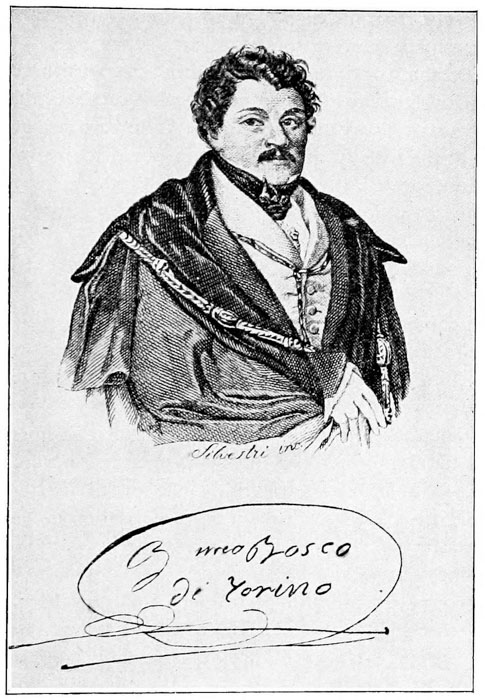 Silvestri inc.
Bmeo Bosco
di Torino